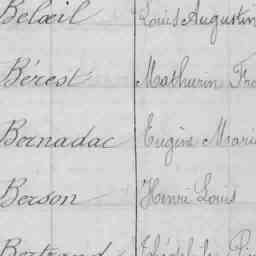 Belœil Louis Augustin
Bérest Mathurin Fra
Bernadac Eugène Marie
Berson Henri Louis
Bertrand